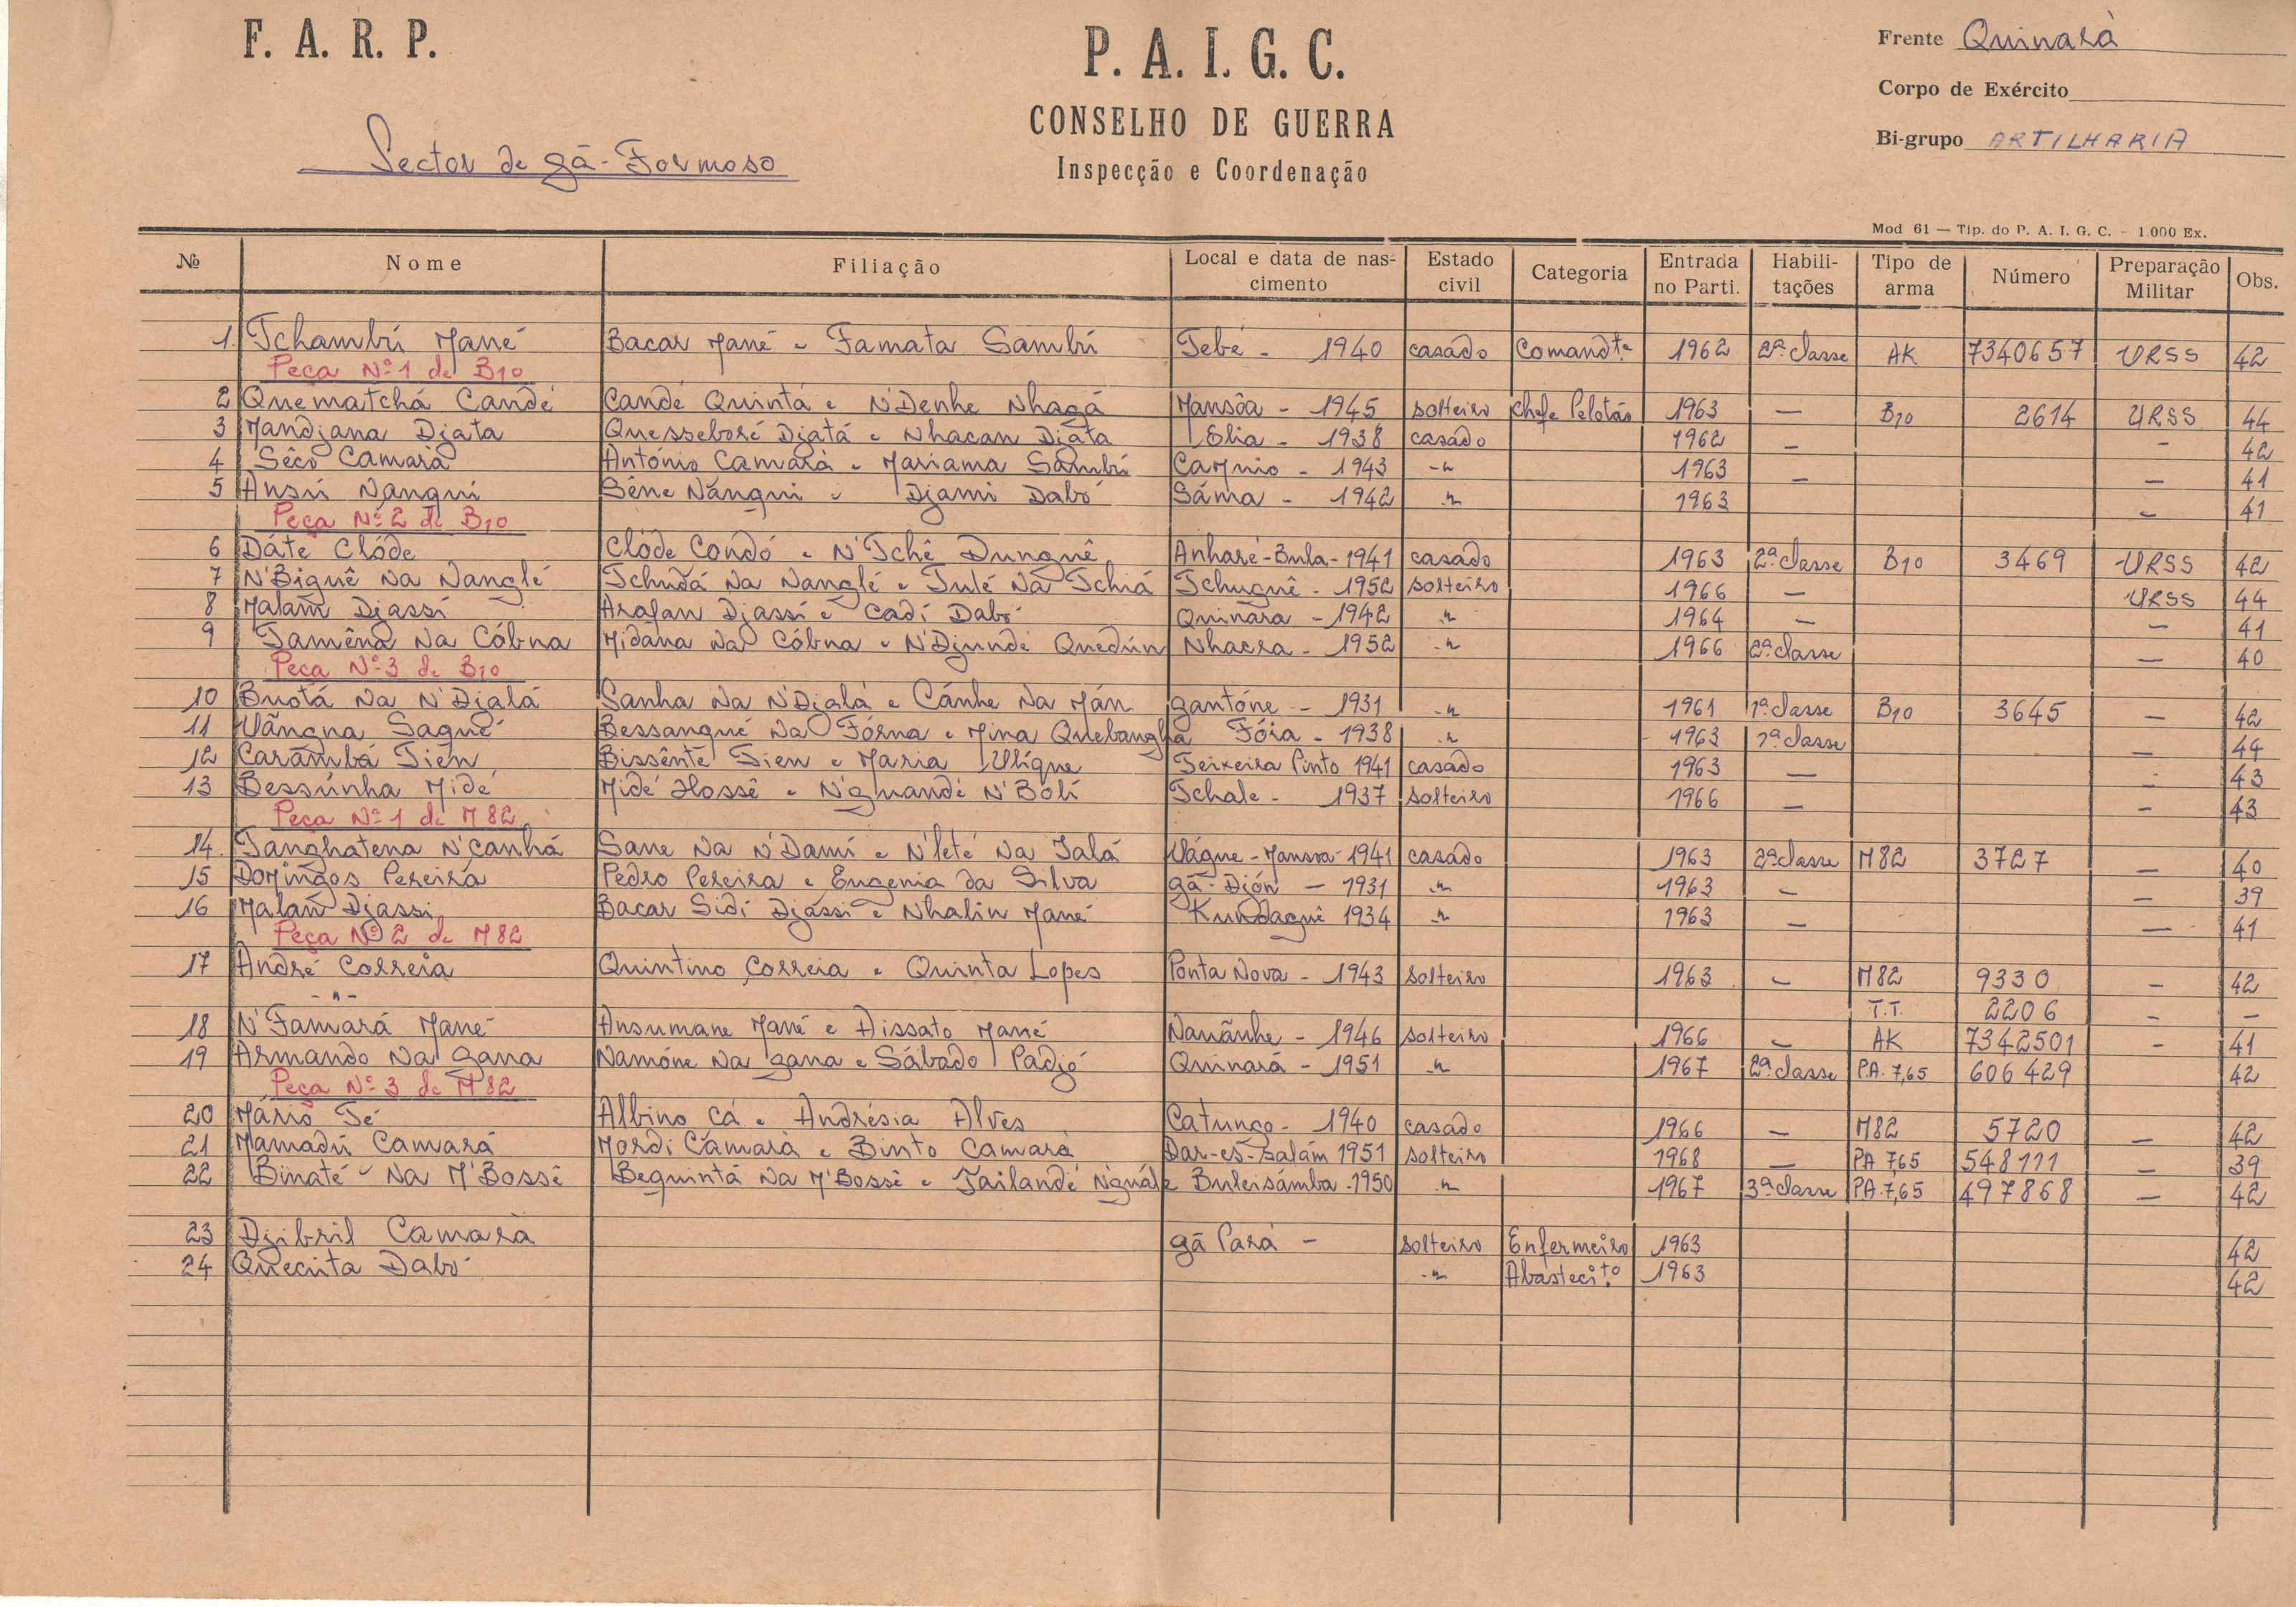 F. A. R. P.
P. A. I. G. C.
CONSELHO DE GUERRA
Inspecção e Coordenação
Sector de Gã-Formoso
Frente Quinarà
Corpo de Exército
Bi-grupo ARTILHARIA
Mod 61 — Tip. do P. A. I. G. C. - 1.000 Ex.
№ Nome Filiação Local e data de nascimento Estado civil Categoria Entrada no Parti. Habilitações Tipo de arma Número Preparação Militar Obs.
1. Tchambú Mané Bacar Mané e Famata Sambú Tebe - 1940 casádo Comandte 1962 2ª classe AK 7340657 URSS 42
Peça Nº 1 de B10
2 Quematchá Candé Candé Quintá e N'Denhe Nhagá Mansôa - 1945 solteiro Chefe Pelotão 1963 — B10 2614 URSS 44
3 Mandjana Djata Quesseboré Djatá e Nhacan Djata Elia - 1938 casádo 1962 — - 42
4 Sêco Camarà António Camarà e Mariama Sambú 1943 -"- 1963 — — 41
5 Ansú Nanqui Sêne Nánqui e Djami Dabó Sáma - 1942 -"- 1963 — 41
Peça Nº 2 de B10
6 Dáte Clóde Clóde Condó e N'Tchê Dunquê Anharé-Bula-1941 casádo 1963 2ª classe B10 3469 URSS 42
7 N'Biguê Na Nanglé Tchudá Na Nanglé e Tulé Na Tchiá Tchuguê - 1952 solteiro 1966 — URSS 44
8 Malam Djassi Arafan Djassi e Cadi Dabó Quinara - 1942 -"- 1964 — — 41
9 Tamêna Na Cóbna Midána Na Cóbna e N'Djundi Quedún Nhacra - 1952 -"- 1966 2ª classe — 40
Peça Nº 3 de B10
10 Buotá Na N'Djalá Sanha Na N'Djalá e Cánhe Na Mán Gantóne - 1931 -"- 1961 1ª classe B10 3645 — 42
11 Uãngna Sagué Bessangué Na Fórna e Mina Quebangha Fóia - 1938 -"- 1963 1ª classe — 44
12 Carambá Tien Bissênte Tien e Maria Ulíque Teixeira Pinto 1941 casádo 1963 — - 43
13 Bessúnha Midé Midé Hossê e N'guandé N'Bóli Tchale - 1937 solteiro 1966 — - 43
Peça Nº 1 de M82
14. Tanghatena N'canhá Sane Na N'Dami e N'leté Na Ialá Uágne-Mansoa-1941 casádo 1963 2ª classe M82 3727 — 40
15 Domingos Pereira Pedro Pereira e Eugenia da Silva Gã-Djón - 1931 -"- 1963 — — 39
16 Malan Djassi Bacar Sidi Djássi e Nhalin Mané Kundaguê 1934 -"- 1963 — — 41
Peça Nº 2 de M82
17 André Correia Quintino Correia e Quinta Lopes Ponta Nova - 1943 solteiro 1963 — M82 9330 — 42
-"- T.T. 2206 - —
18 N'Famará Mané Ansumane Mané e Aissato Mané Nauãnhe - 1946 solteiro 1966 — AK 7342501 - 41
19 Armando Na Gana Namóne Na Gana e Sábado Padjó Quinará - 1951 -"- 1967 2ª classe P.A. 7,65 606429 42
Peça Nº 3 de M82
20 Mário Té Albino Cá e Andrésia Alves Catunco - 1940 casádo 1966 — M82 5720 — 42
21 Mamadú Camará Mordi Camarà e Binto Camarà Dar-es-Salám 1951 solteiro 1968 — PA 7,65 548111 — 39
22 Binaté Na M'Bossê Bequintà Na M'Bossê e Tailandé N'guále Buleisámba - 1950 -"- 1967 3ª classe PA. 7,65 497868 — 42
23 Djibril Camarà Gã Pará - solteiro Enfermeiro 1963 42
24 Quecuta Dabó -"- Abastecito 1963 42